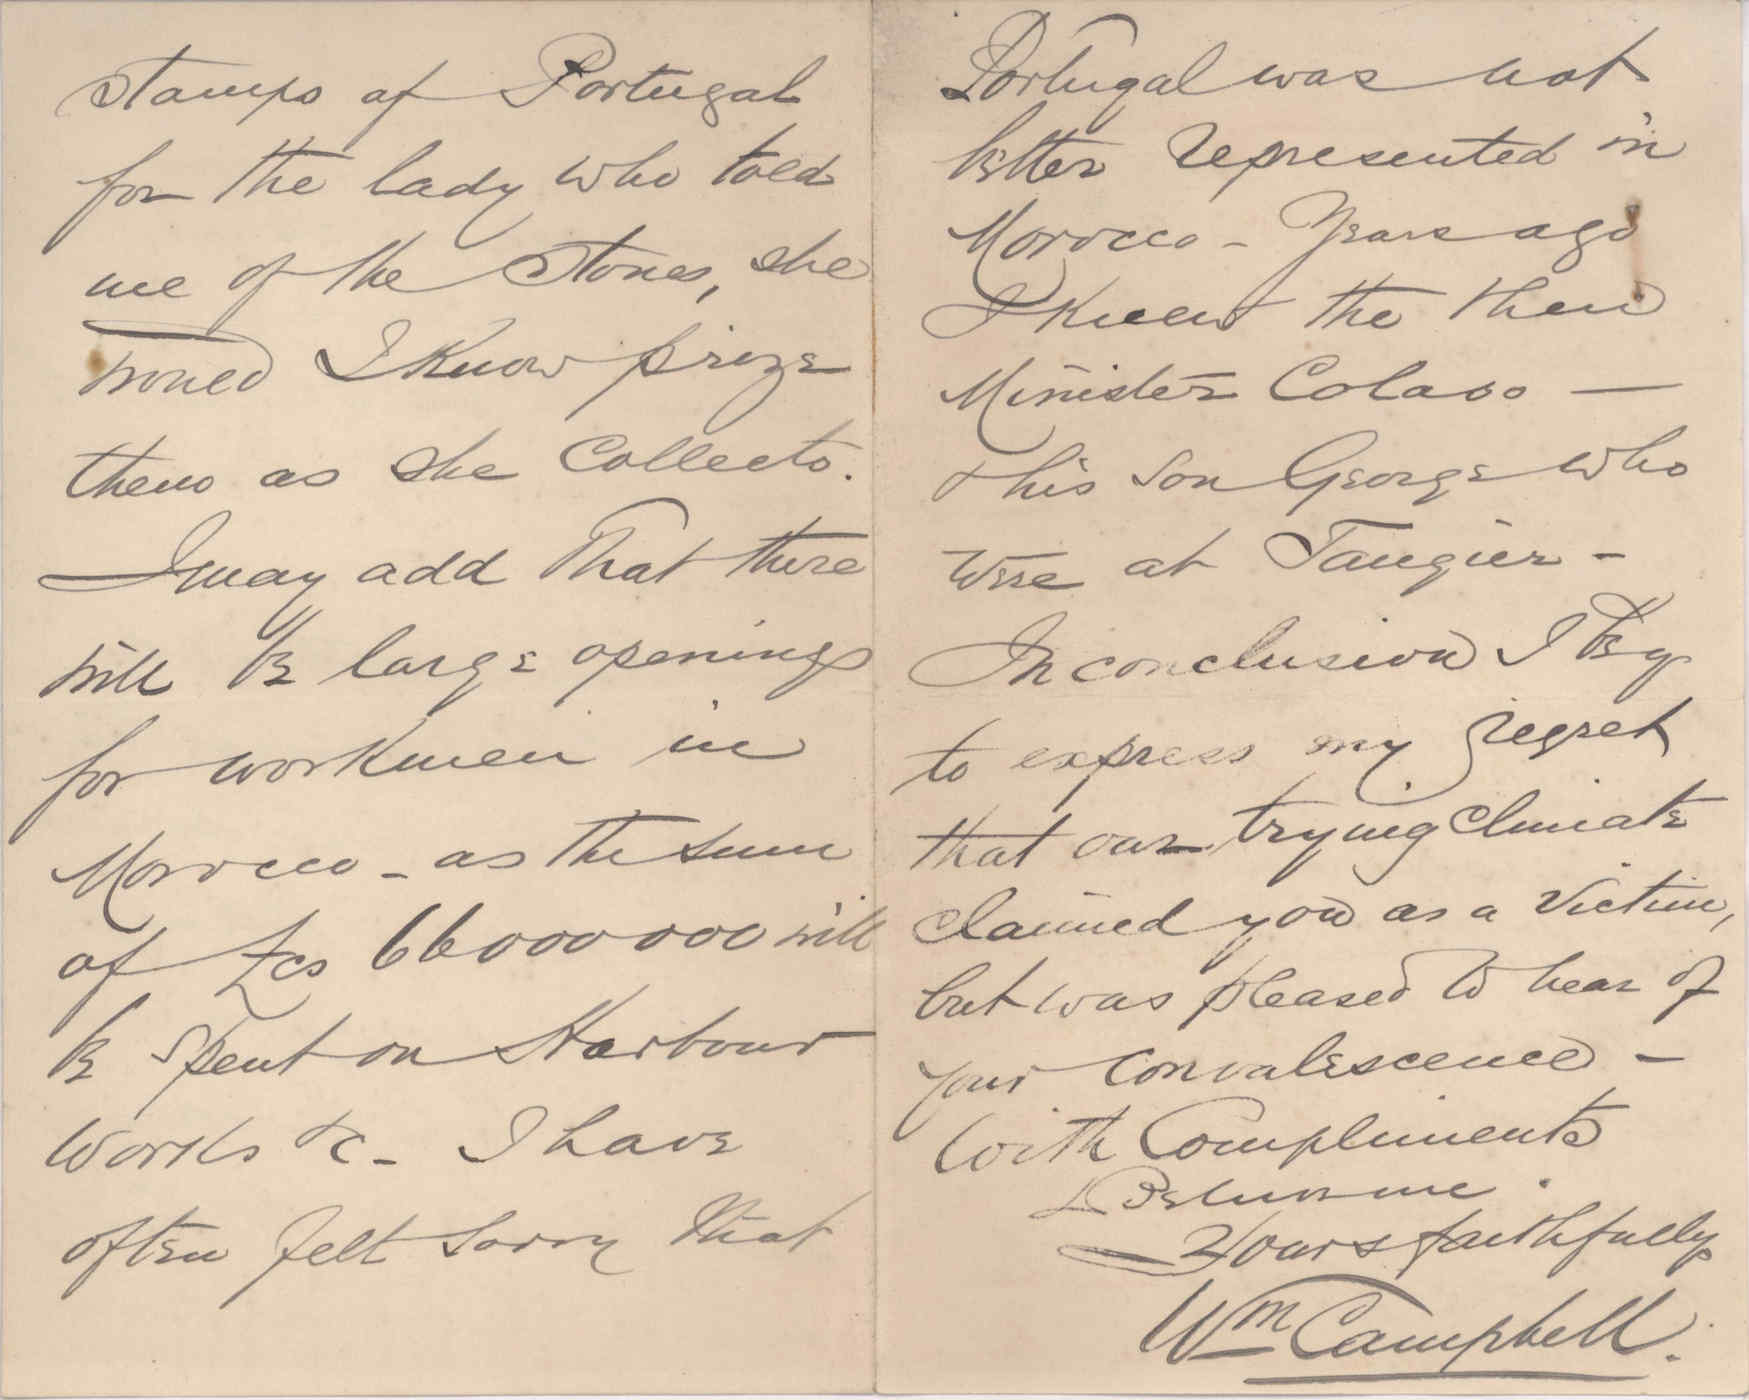 Stamps of Portugal
for the lady who told
me of the Stones, she
would I know prize
them as she Collects.
I may add that there
will be large openings
for workmen in
Morocco - as the sum
of 66000000 will
be spent on Harbour
Works &c - I have
often felt sorry that
Portugal was not
better represented in
Morocco - Years ago
I knew the then
Minister Colaso —
& his son George who
were at Tangier -
In conclusion I beg
to express my regret
that our trying Climate
claimed you as a Victim,
but was pleased to hear of
your convalescence -
With Compliments
Believe me.
Yours faithfully
Wm Campbell.